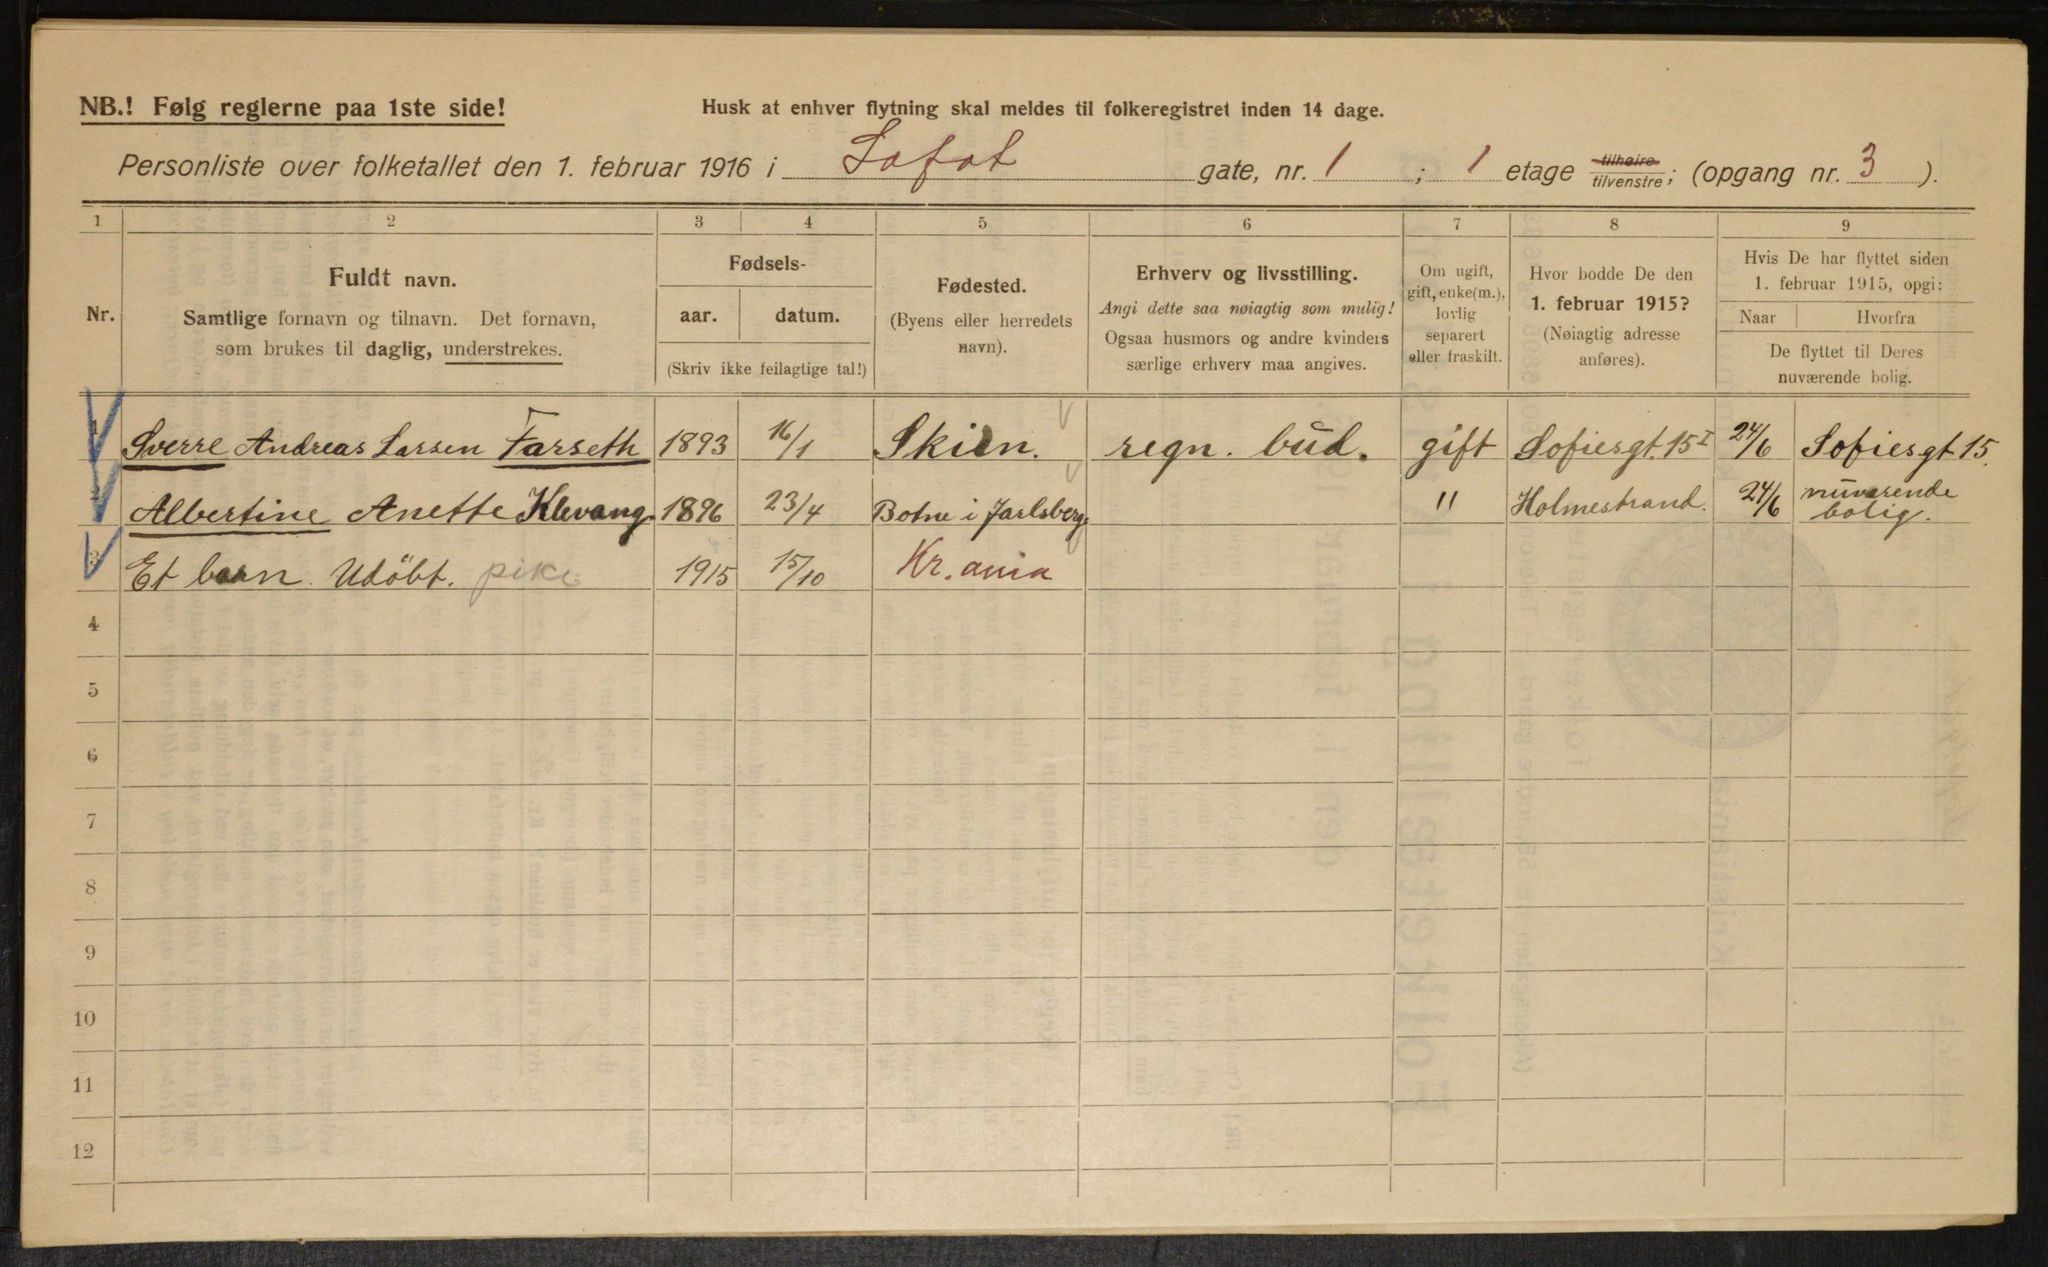 NB.! Følg reglerne paa 1ste side!
Husk at enhver flytning skal meldes til folkeregistret inden 14 dage.
Personliste over folketallet den 1. februar 1916 i Lofot gate, nr. 1 ; 1 etage tilhøire tilvenstre; (opgang nr. 3 ).
1 2 3 4 5 6 7 8 9
Nr.
Fuldt navn.
Samtlige fornavn og tilnavn. Det fornavn,
som brukes til daglig, understrekes.
Fødsels-
aar. datum.
(Skriv ikke feilagtige tal!)
Fødested.
(Byens eller herredets
navn).
Erhverv og livsstilling.
Angi dette saa nøiagtig som mulig!
Ogsaa husmors og andre kvinders
særlige erhverv maa angives.
Om ugift,
gift, enke(m.),
lovlig
separert
eller fraskilt.
Hvor bodde De den
1. februar 1915?
(Nøiagtig adresse
anføres).
Hvis De har flyttet siden
1. februar 1915, opgi:
Naar Hvorfra
De flyttet til Deres
nuværende bolig.
1 Sverre Andreas Larsen Farseth 1893 16/1 Skien. regn. bud. gift Sofiesgt. 15 I 24/6 Sofiesgt 15.
2 Albertine Anette Klevang. 1896 23/4 Botne i Jarlsberg. " Holmestrand. 24/6 nuværende bolig.
3 Et barn. Udöbt. pike 1915 15/10 Kr.ania
4
5
6
7
8
9
10
11
12